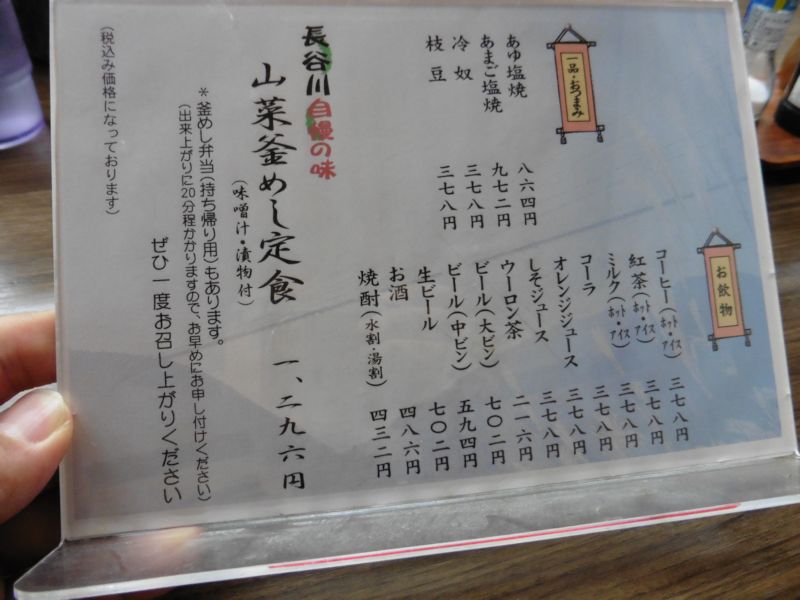 一品・おつまみ
あゆ塩焼 八六四円
あまご塩焼 九七二円
冷奴 三七八円
枝豆 三七八円
お飲物
コーヒー(ホット・アイス) 三七八円
紅茶(ホット・アイス) 三七八円
ミルク(ホット・アイス) 三七八円
コーラ 三七八円
オレンジジュース 三七八円
しそジュース 三七八円
ウーロン茶 二一六円
ビール(大ビン) 七〇二円
ビール(中ビン) 五九四円
生ビール 七〇二円
お酒 四八六円
焼酎(水割・湯割) 四三二円
長谷川自慢の味
山菜釜めし定食 一、二九六円
(味噌汁・漬物付)
*釜めし弁当(持ち帰り用)もあります。
(出来上がりに20分程かかりますので、お早めにお申し付けください)
ぜひ一度お召し上がりください
(税込み価格になっております)